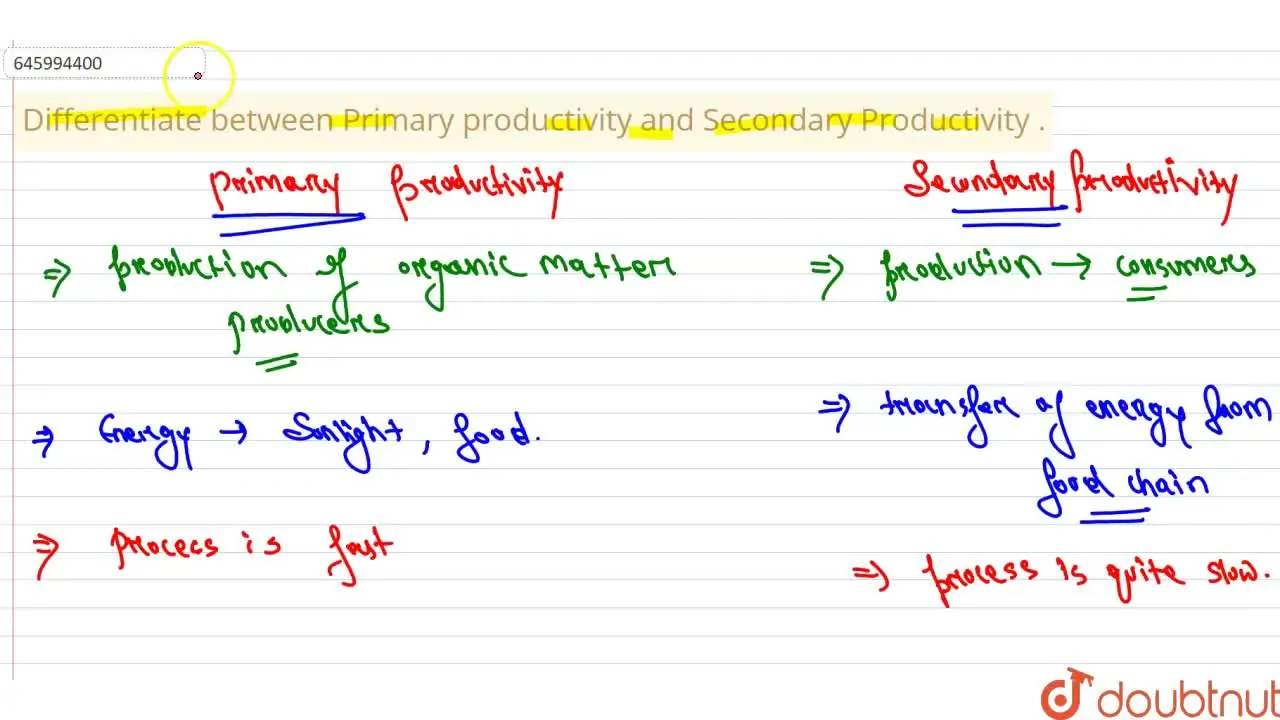 645994400
Differentiate between Primary productivity and Secondary Productivity .
Primary productivity
Secondary productivity
⇒ production of organic matter
producers
⇒ production → consumers
⇒ Energy → Sunlight, food.
⇒ transfer of energy from
food chain
⇒ Process is fast
⇒ process is quite slow.
doubtnut